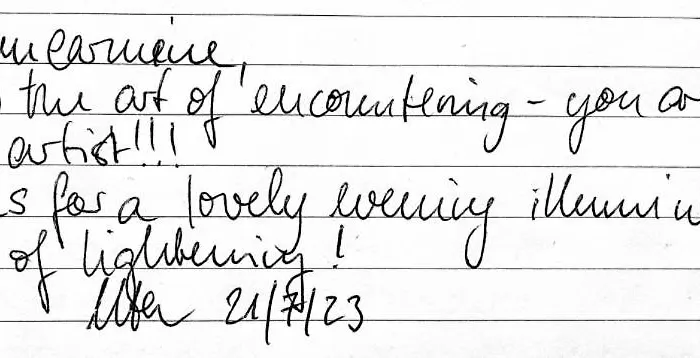 the art of encountering - you ar
artist!!!
s for a lovely evening illumin
of lightening!
21/7/23